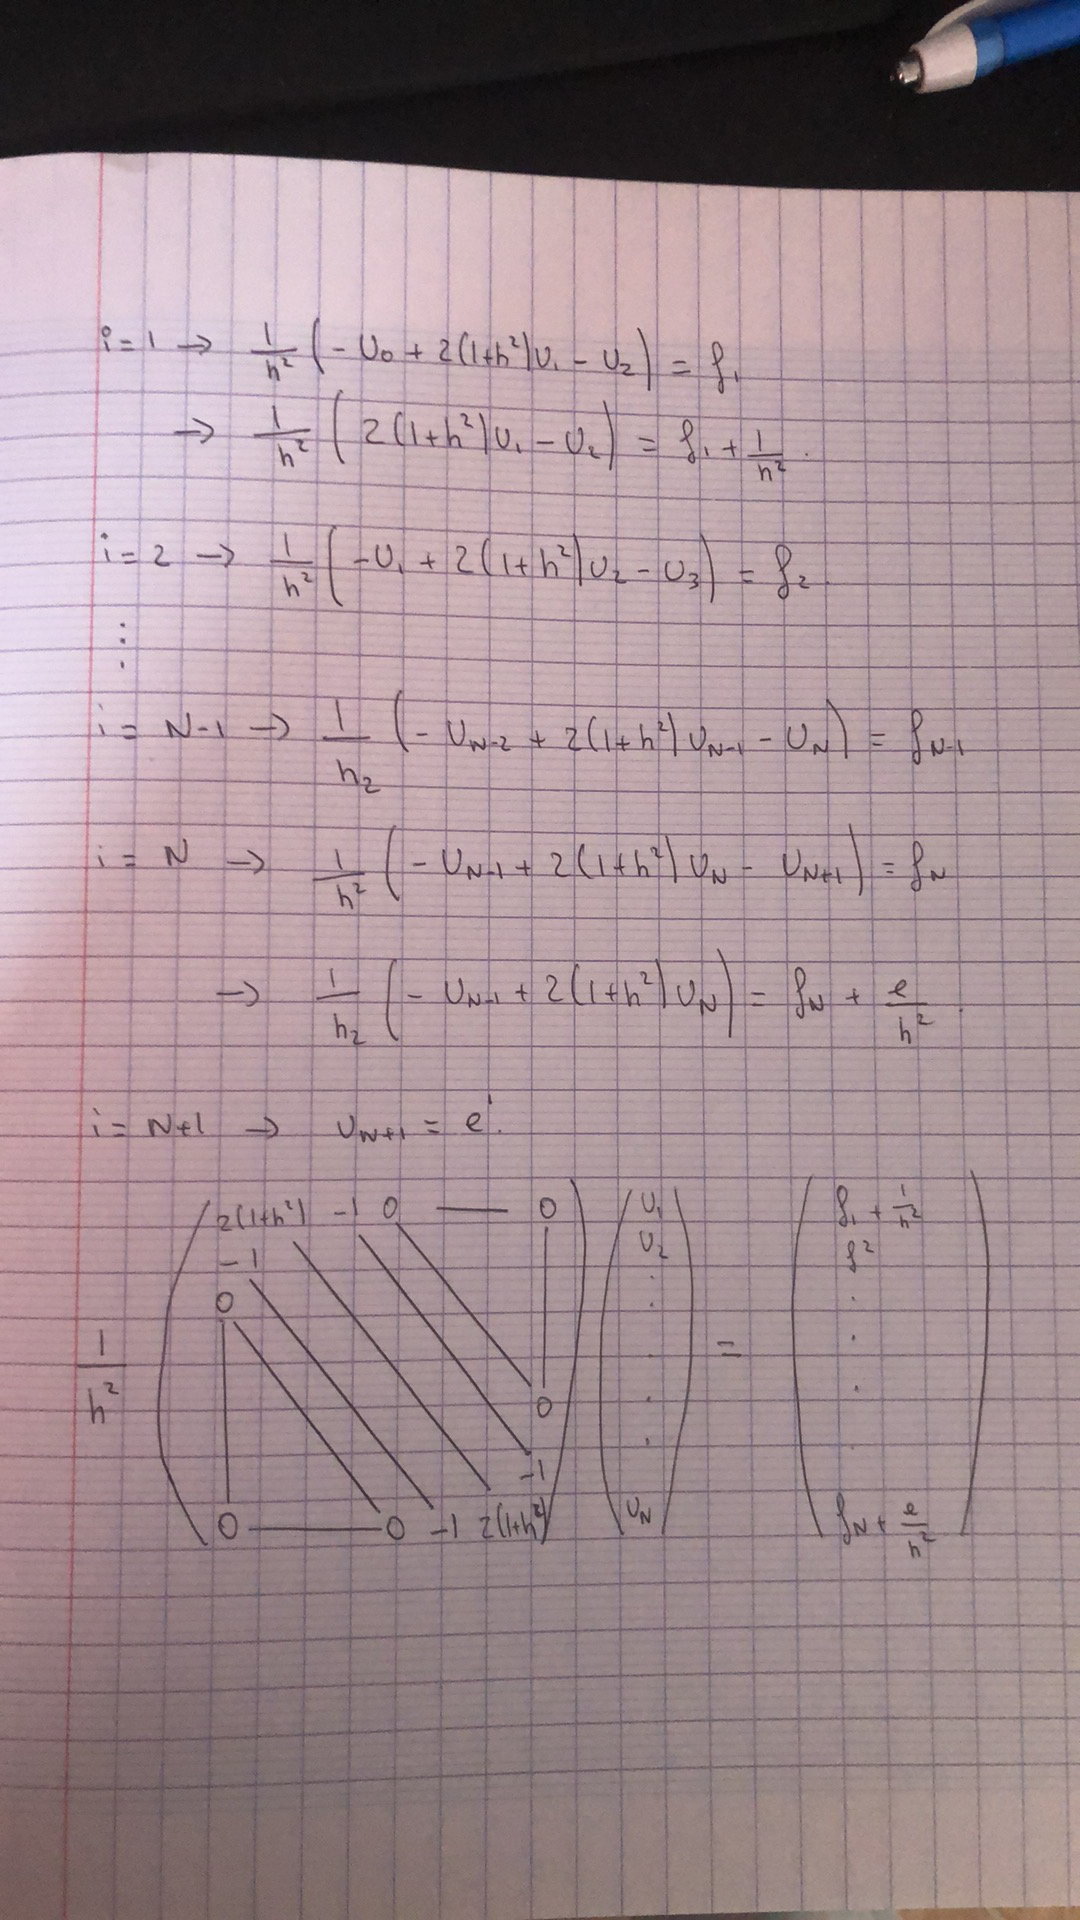 i = 1 → 1/h² (- U₀ + 2(1+h²)U₁ - U₂) = f₁
→ 1/h² ( 2(1+h²)U₁ - U₂) = f₁ + 1/h².
i = 2 → 1/h² (-U₁ + 2(1+h²)U₂ - U₃) = f₂
⋮
i = N-1 → 1/h₂ (- U_{N-2} + 2(1+h²) U_{N-1} - U_N) = f_{N-1}
i = N → 1/h² (- U_{N-1} + 2(1+h²) U_N - U_{N+1}) = f_N
→ 1/h₂ (- U_{N-1} + 2(1+h²) U_N) = f_N + e/h².
i = N+1 → U_{N+1} = e.
2(1+h²) -1 0 — 0 U₁ f₁ + 1/h²
-1 U₂ f²
0 . .
1/h² . = .
0 . .
-1 .
0 — 0 -1 2(1+h²) U_N f_N + e/h²